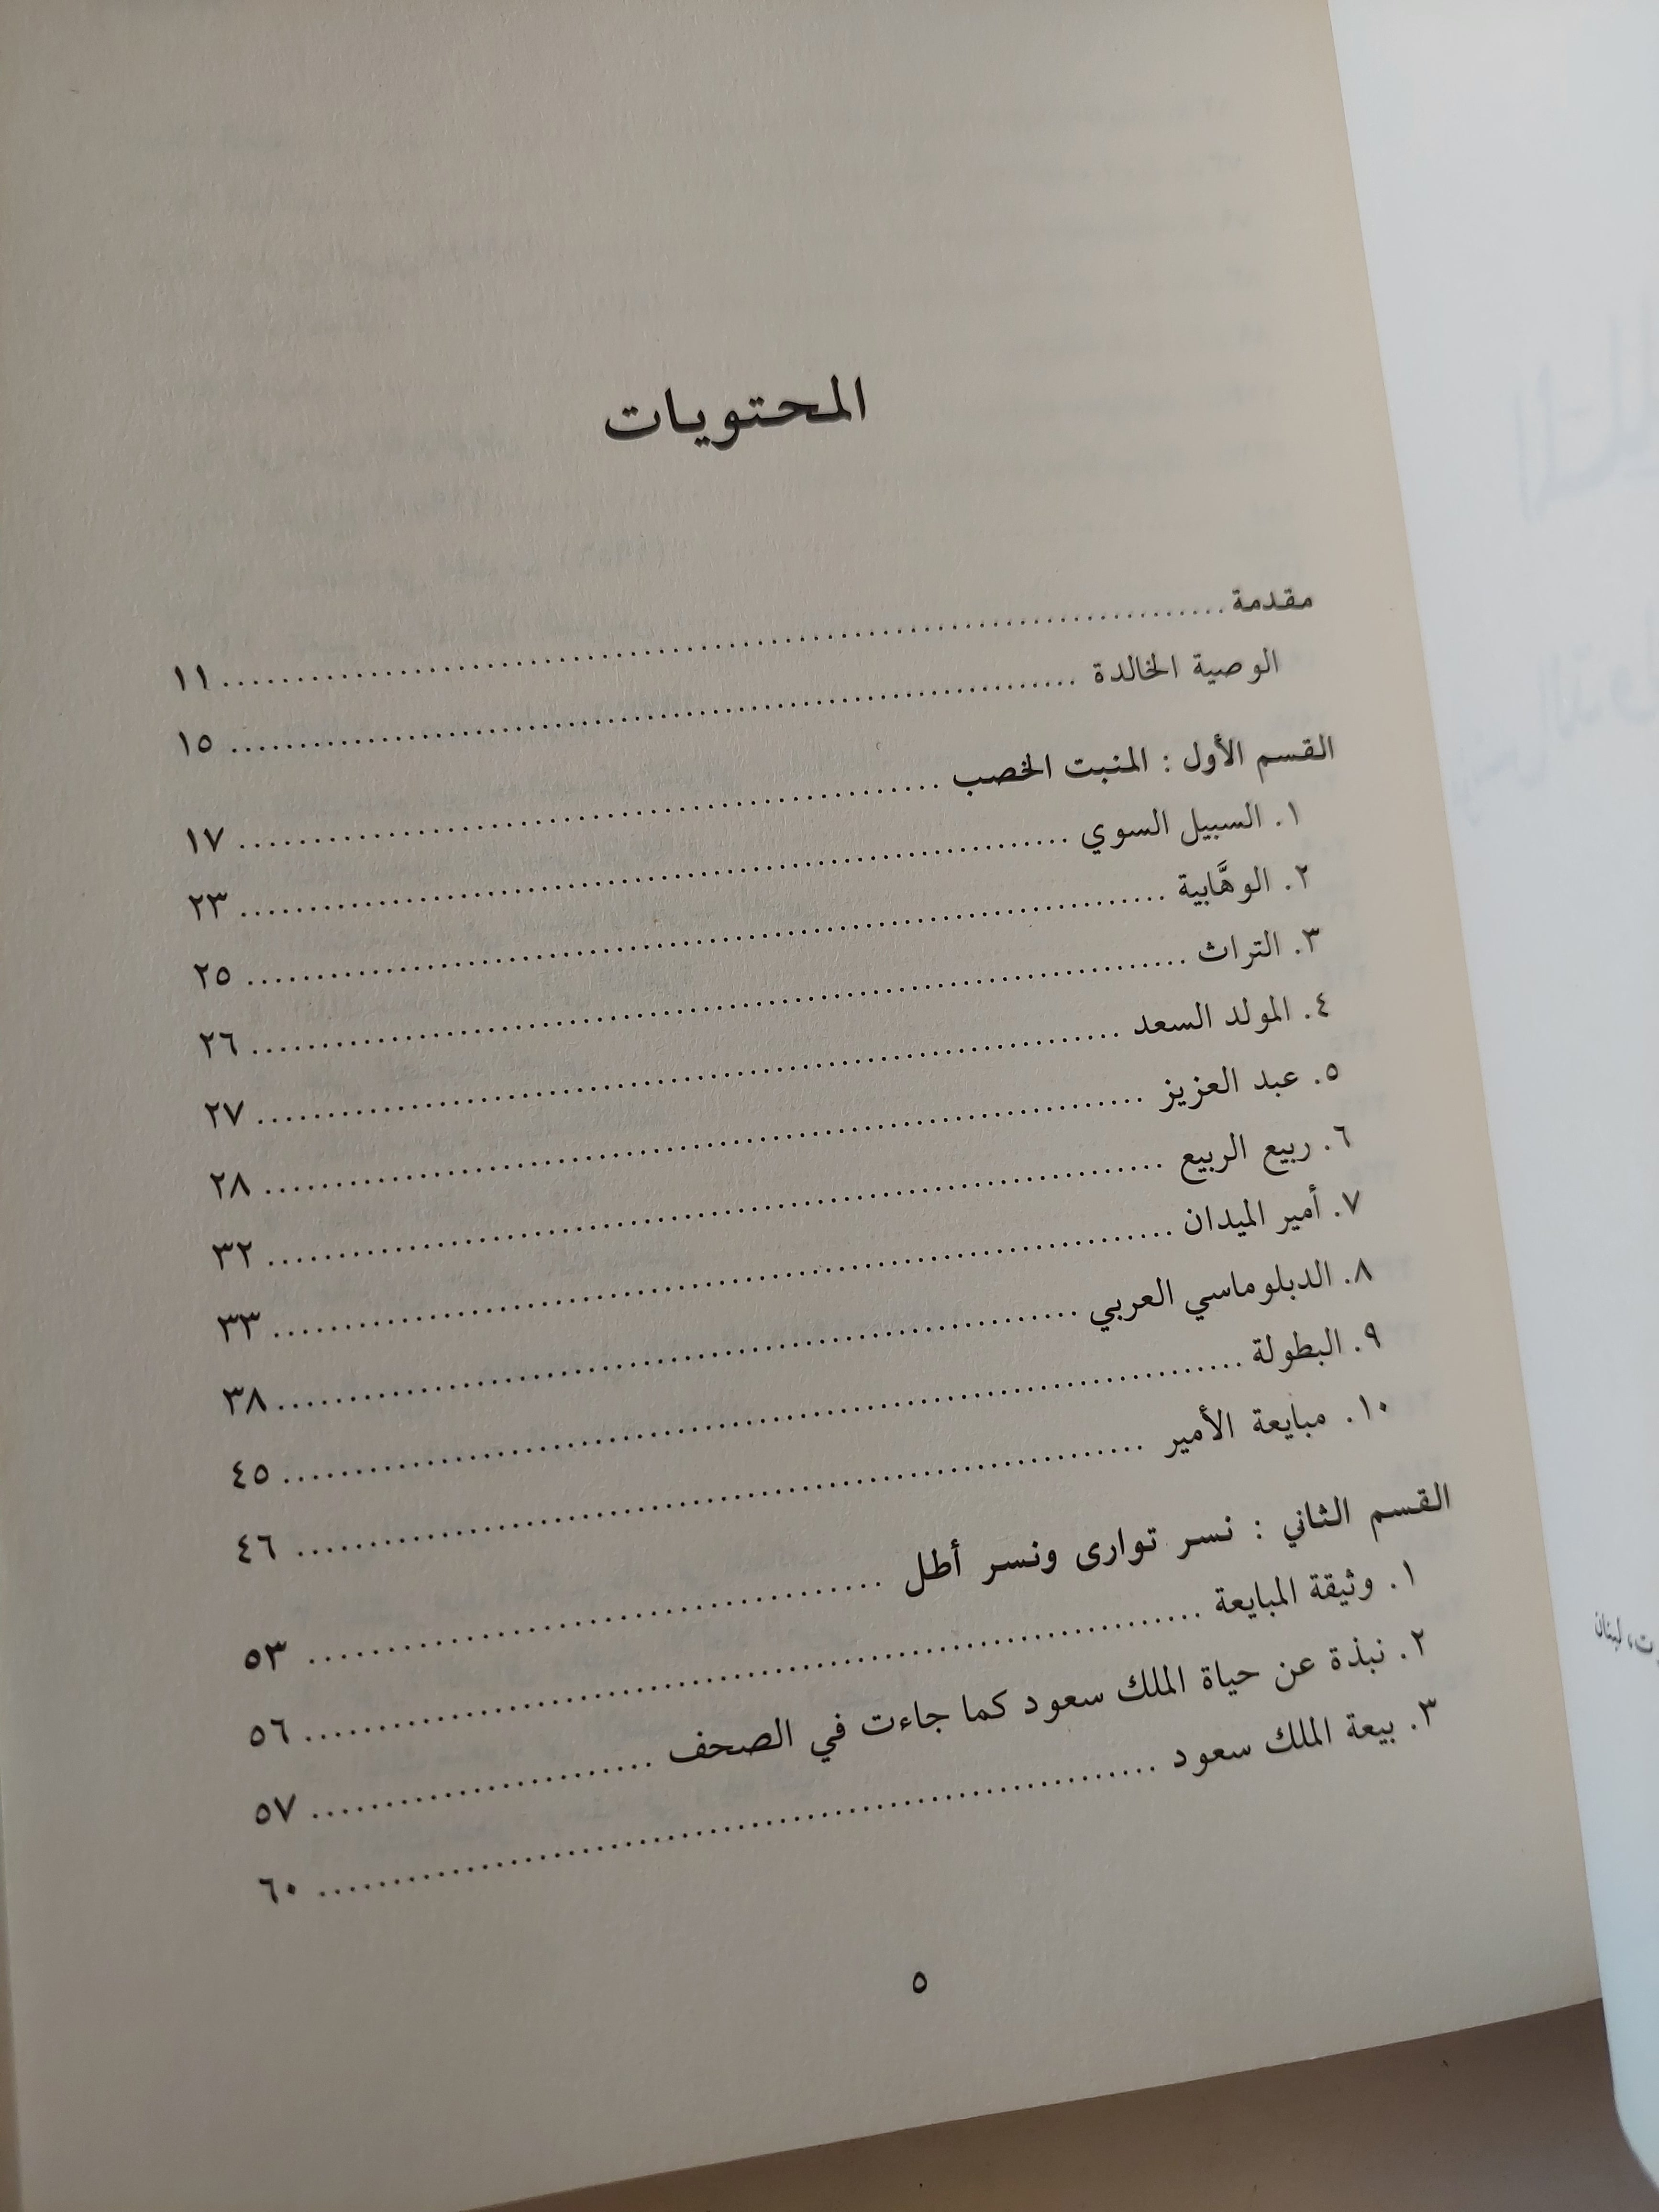 المحتويات
مقدمة ........ ١١
الوصية الخالدة ........ ١٥
القسم الأول : المنبت الخصب ........ ١٧
١. السبيل السوي ........ ٢٣
٢. الوهَّابية ........ ٢٥
٣. التراث ........ ٢٦
٤. المولد السعد ........ ٢٧
٥. عبد العزيز ........ ٢٨
٦. ربيع الربيع ........ ٣٢
٧. أمير الميدان ........ ٣٣
٨. الدبلوماسي العربي ........ ٣٨
٩. البطولة ........ ٤٥
١٠. مبايعة الأمير ........ ٤٦
القسم الثاني : نسر توارى ونسر أطل ........ ٥٣
١. وثيقة المبايعة ........ ٥٦
٢. نبذة عن حياة الملك سعود كما جاءت في الصحف ........ ٥٧
٣. بيعة الملك سعود ........ ٦٠
٥